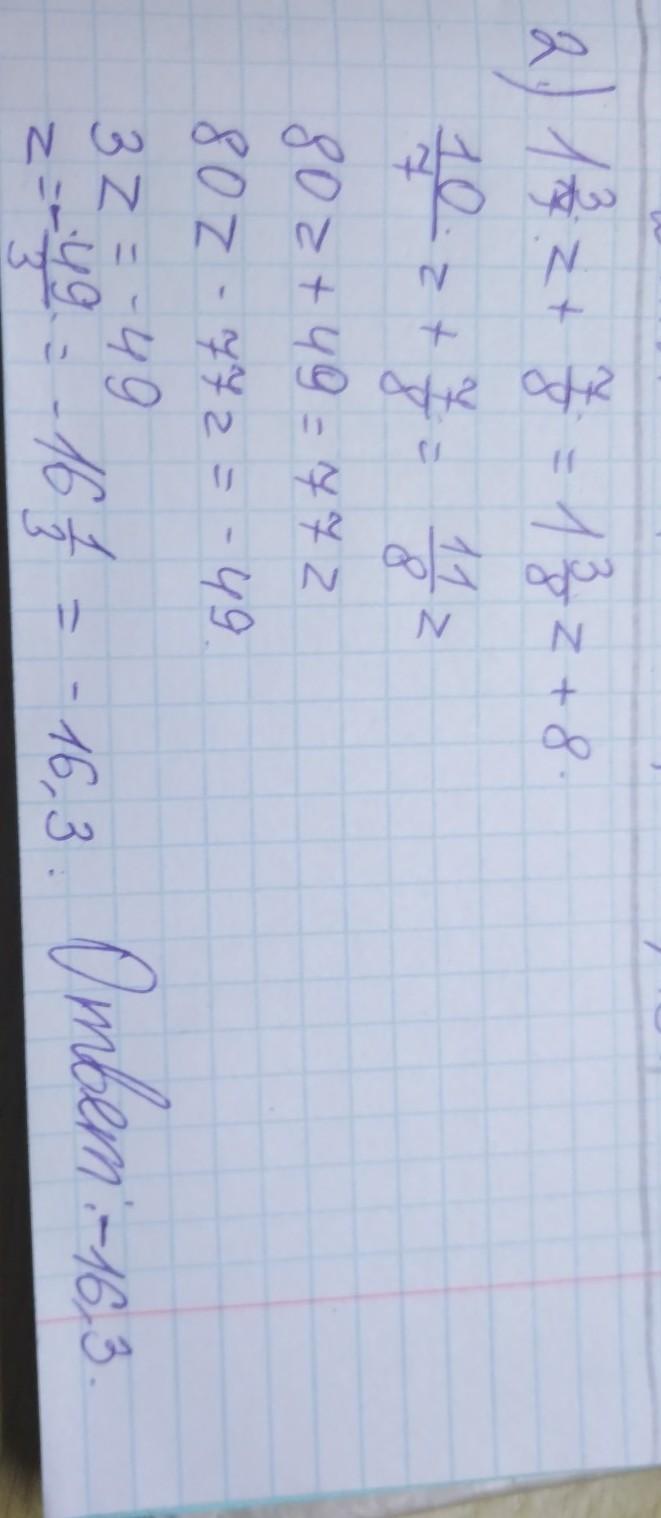 2) 1 3/7 z + 7/8 = 1 3/8 z + 8.
10/7 z + 7/8 = 11/8 z
80z + 49 = 77z
80z - 77z = -49.
3z = -49
z = -49/3 = -16 1/3 = -16,3. Ответ: -16,3.